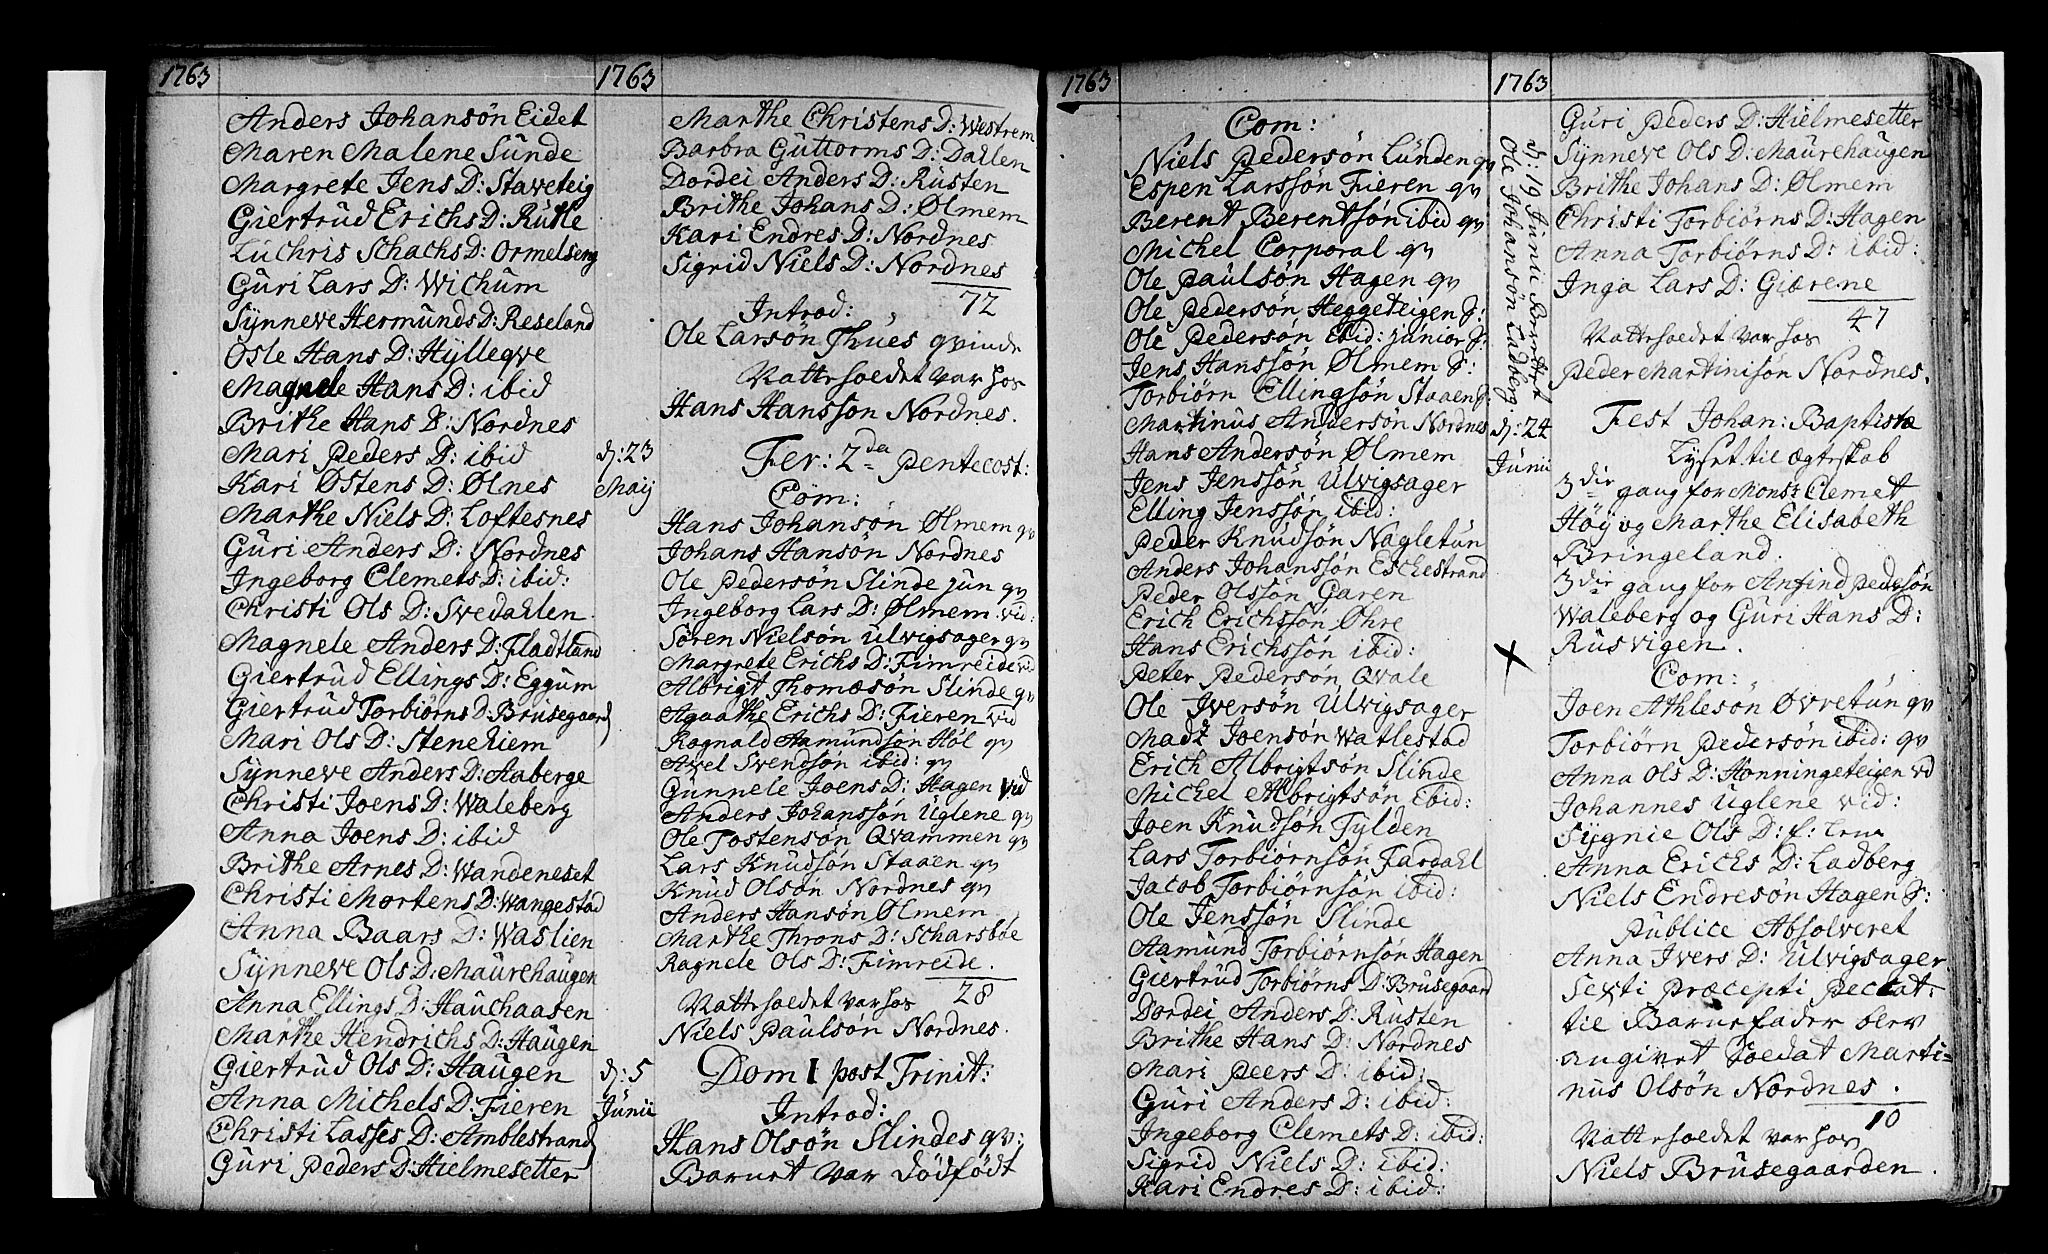 1763
Anders Johansøn Eidet
Maren Malene Sunde
Margrete Jens D: Staveteig
Giertrud Erichs D: Rutle
Luchris Schachs D: Ormelseng
Guri Lars D: Wichum
Synneve Hermunds D: Reseland
Osle Hans D: Hylleqve
Magnele Hans D: ibid
Brithe Hans D: Nordnes
Mari Peders D: ibid
Kari Østens D: Ølnes
Marthe Niels D: Loftesnes
Guri Anders D: Nordnes
Ingeborg Clemets D: ibid:
Christi Ols D: Svedahlen
Magnele Anders D: Fladtland
Giertrud Ellings D: Eggum
Giertrud Torbiørns D: Brusegaard
Mari Ols D: Stenehiem
Synneve Anders D: Aaberge
Christi Joens D: Waleberg
Anna Joens D: ibid
Brithe Arnes D: Wandeneset
Christi Mortens D: Wangestad
Anna Baars D: Waslien
Synneve Ols D: Maurehaugen
Anna Ellings D: Hauchaasen
Marthe Hendrichs D: Haugen
Giertrud Ols D: Haugen
Anna Michels D: Fieren
Christi Lasses D: Amblestrand
Guri Peders D: Hielmesetter
1763
Marthe Christens D: Westrem
Barbra Guttorms D: Dahlen
Dordei Anders D: Rusten
Brithe Johans D: Ølmem
Kari Endres D: Nordnes
Sigrid Niels D: Nordnes
72
Introd:
Ole Larsøn Thues qvinde
Vattersoldet var hos
Hans Hansson Nordnes.
d: 23 Maij
Fer: 2da Pentecost:
Com:
Hans Johansøn Ølmem qv
Johans Hansøn Nordnes
Ole Pedersøn Slinde jun qv
Ingeborg Lars D: Ølmem vid:
Søren Nielsøn Ulvigsager qv
Margrete Erichs D: Fimreide vid
Albrigt Thomæsøn Slinde qv
Agaathe Erichs D: Fieren vid
Ragnald Aamundsøn Høl qv
Axel Svendsøn ibid: qv
Gunnele Joens D: Hagen vid
Anders Johanssøn Uglene qv
Ole Tostensøn Qvammen qv
Lars Knudsøn Staaen qv
Knud Olsøn Nordnes qv
Anders Hansøn Ølmem
Marthe Throns D: Scharsbøe
Ragnele Ols D: Fimreide.
28
Vattersoldet var hos
Niels Paulsøn Nordnes.
d: 5 Junii
Dom 1 post Trinit:
Introd:
Hans Olsøn Slindes qv:
Barnet var dødfødt
1763
Com:
Niels Pedersøn Lunden qv
Espen Larssøn Fieren qv
Berent Berentsøn ibid qv
Michel Corporal qv
Ole Paulsøn Hagen qv
Ole Pedersøn Heggeteigen S:
Ole Pedersøn Ibid: junior S:
Jens Hanssøn Ølmem S:
Torbiørn Ellingsøn Staaen S:
Martinus Andersøn Nordnes
Hans Andersøn Ølmem
Jens Jenssøn Ulvigsager
Elling Jenssøn ibid:
Peder Knudsøn Nagletun
Anders Johanssøn Eschestrand
Peder Olssøn Garen
Erich Erichssøn Øhre
Hans Erichssøn ibid:
Peter Pedersøn Qvale
Ole Iversøn Ulvigsager
Madz Joensøn Watlestad
Erich Albrigtsøn Slinde
Michel Albrigtsøn ibid:
Joen Knudsøn Fylden
Lars Torbiørnsøn Fardahl
Jacob Torbiørnsøn ibid:
Ole Jenssøn Slinde
Aamund Torbiørnsøn Hagen
Giertrud Torbiørns D: Brusegaard
Dordei Anders D: Rusten
Brithe Hans D: Nordnes
Mari Peers D: ibid:
Guri Anders D: ibid:
Ingeborg Clemets D: ibid:
Sigrid Niels D: ibid:
Kari Endres D: ibid:
1763
d: 19 Junii
Ole Johansøn Ladberg
Guri Peders D: Hielmesetter
Synneve Ols D: Maurehaugen
Brithe Johans D: Ølmem
Christi Torbiørns D: Hagen
Anna Torbiørns D: ibid:
Inga Lars D: Giærene
47
Vattersoldet var hos
Peder Martinisøn Nordnes.
d: 24 Junii
Fest Johan: Baptistæ
Lyset til ægteskab
3die gang for Monsr Clemet
Høy og Marthe Elisabeth
Bringeland.
3die gang for Anfind Pedersøn
Waleberg og Guri Hans D:
Rusvigen.
Com:
Joen Athlesøn Øvretun qv
Torbiørn Pedersøn ibid: qv
Anna Ols D: Honningeteigen vd
Johannes Uglene vid:
Sygnie Ols D:
Anna Erichs D: Ladberg
Niels Endresøn Hagen S:
Publice Absolveret
Anna Ivers D: Ulvigsager
Sexti Præcepti Peccat:
til Barnefader blev
angivet Soldat Marti-
nus Olsøn Nordnes.
10
Vattersoldet var hos
Niels Brusegaarden.